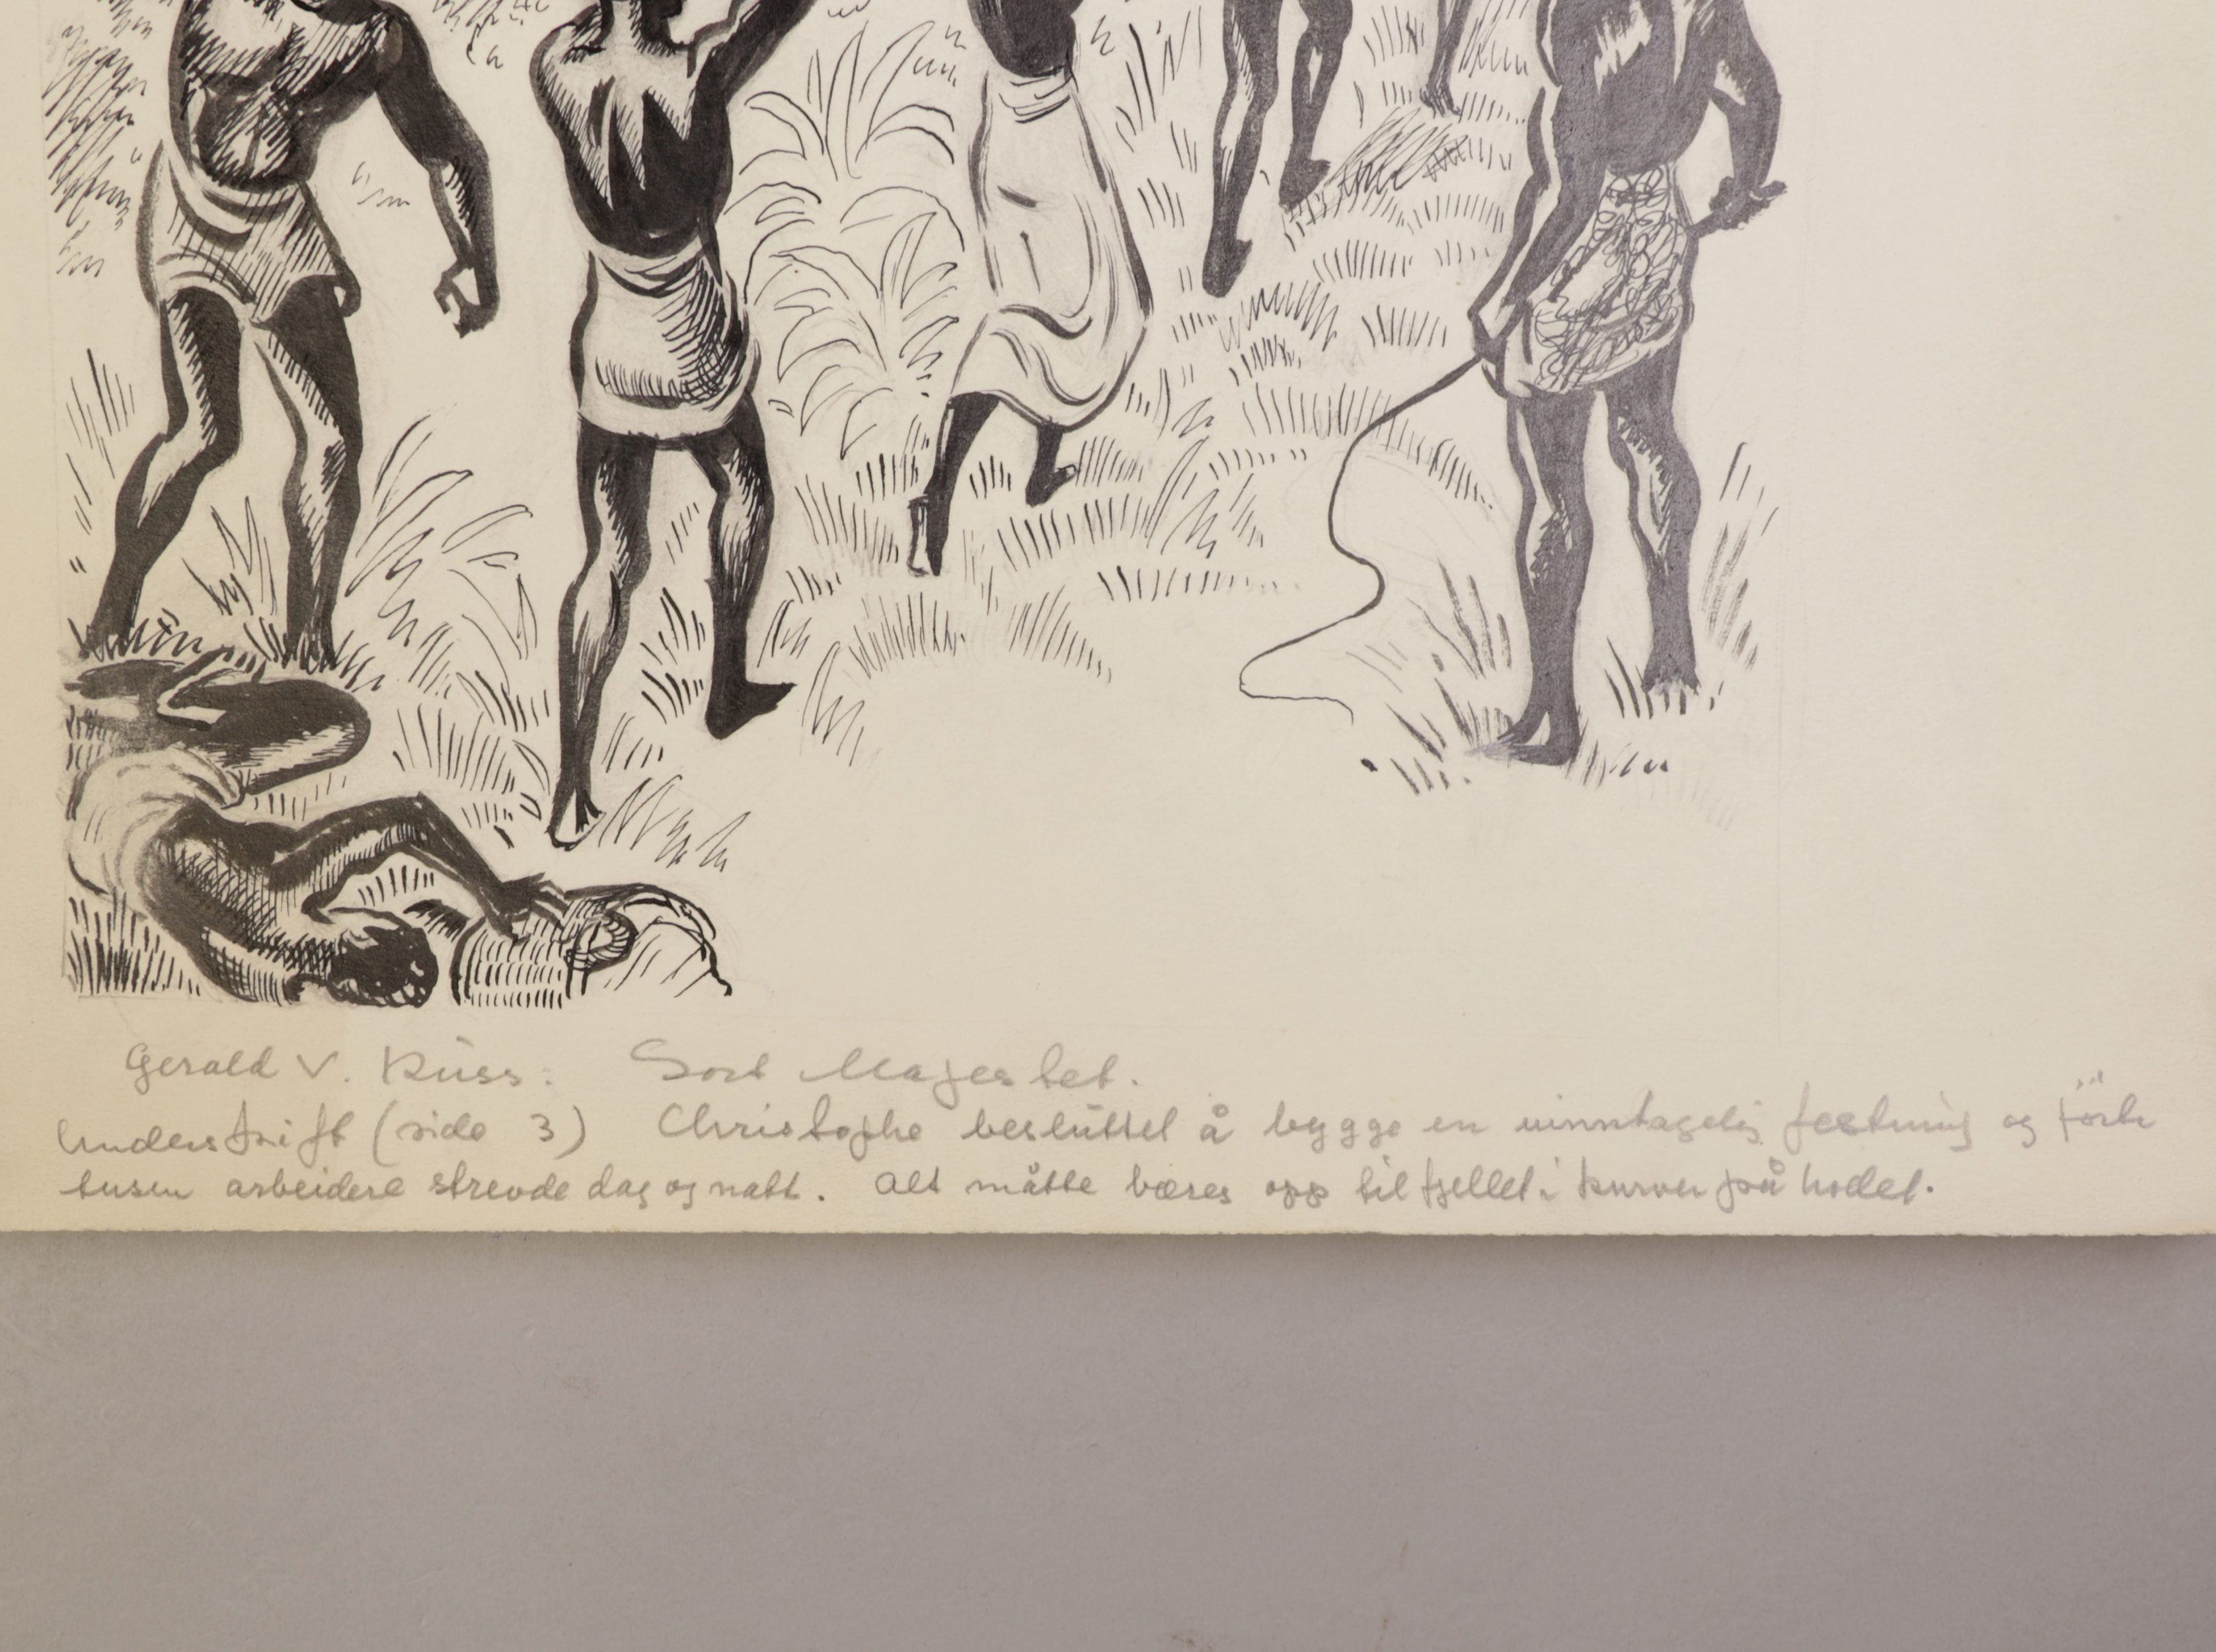 Gerald V. Kuss: Sort Majestet.
Underskrift (side 3) Christophe besluttet å bygge en uinntagelig festning og förti
tusen arbeidere strevde dag og natt. Alt måtte bæres opp til fjellet i kurver på hodet.